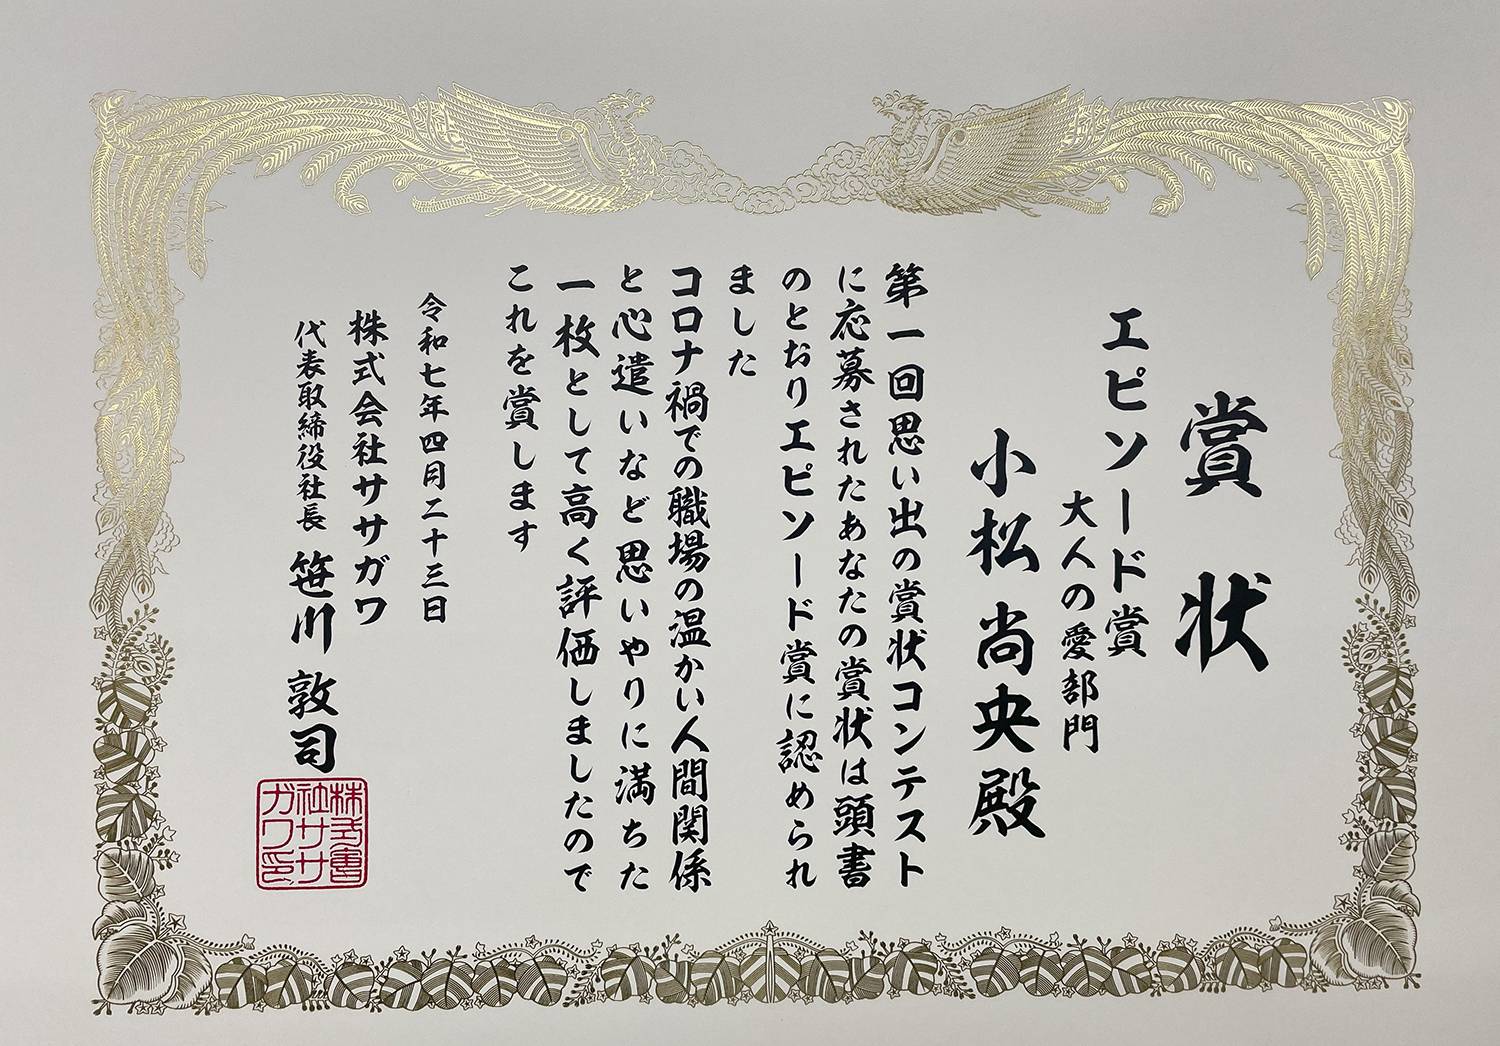 賞状
エピソード賞
大人の愛部門
小松尚央殿
第一回思い出の賞状コンテスト
に応募されたあなたの賞状は頭書
のとおりエピソード賞に認められ
ました
コロナ禍での職場の温かい人間関係
と心遣いなど思いやりに満ちた
一枚として高く評価しましたので
これを賞します
令和七年四月二十三日
株式会社ササガワ
代表取締役社長 笹川敦司
株式會
社ササ
ガワ印